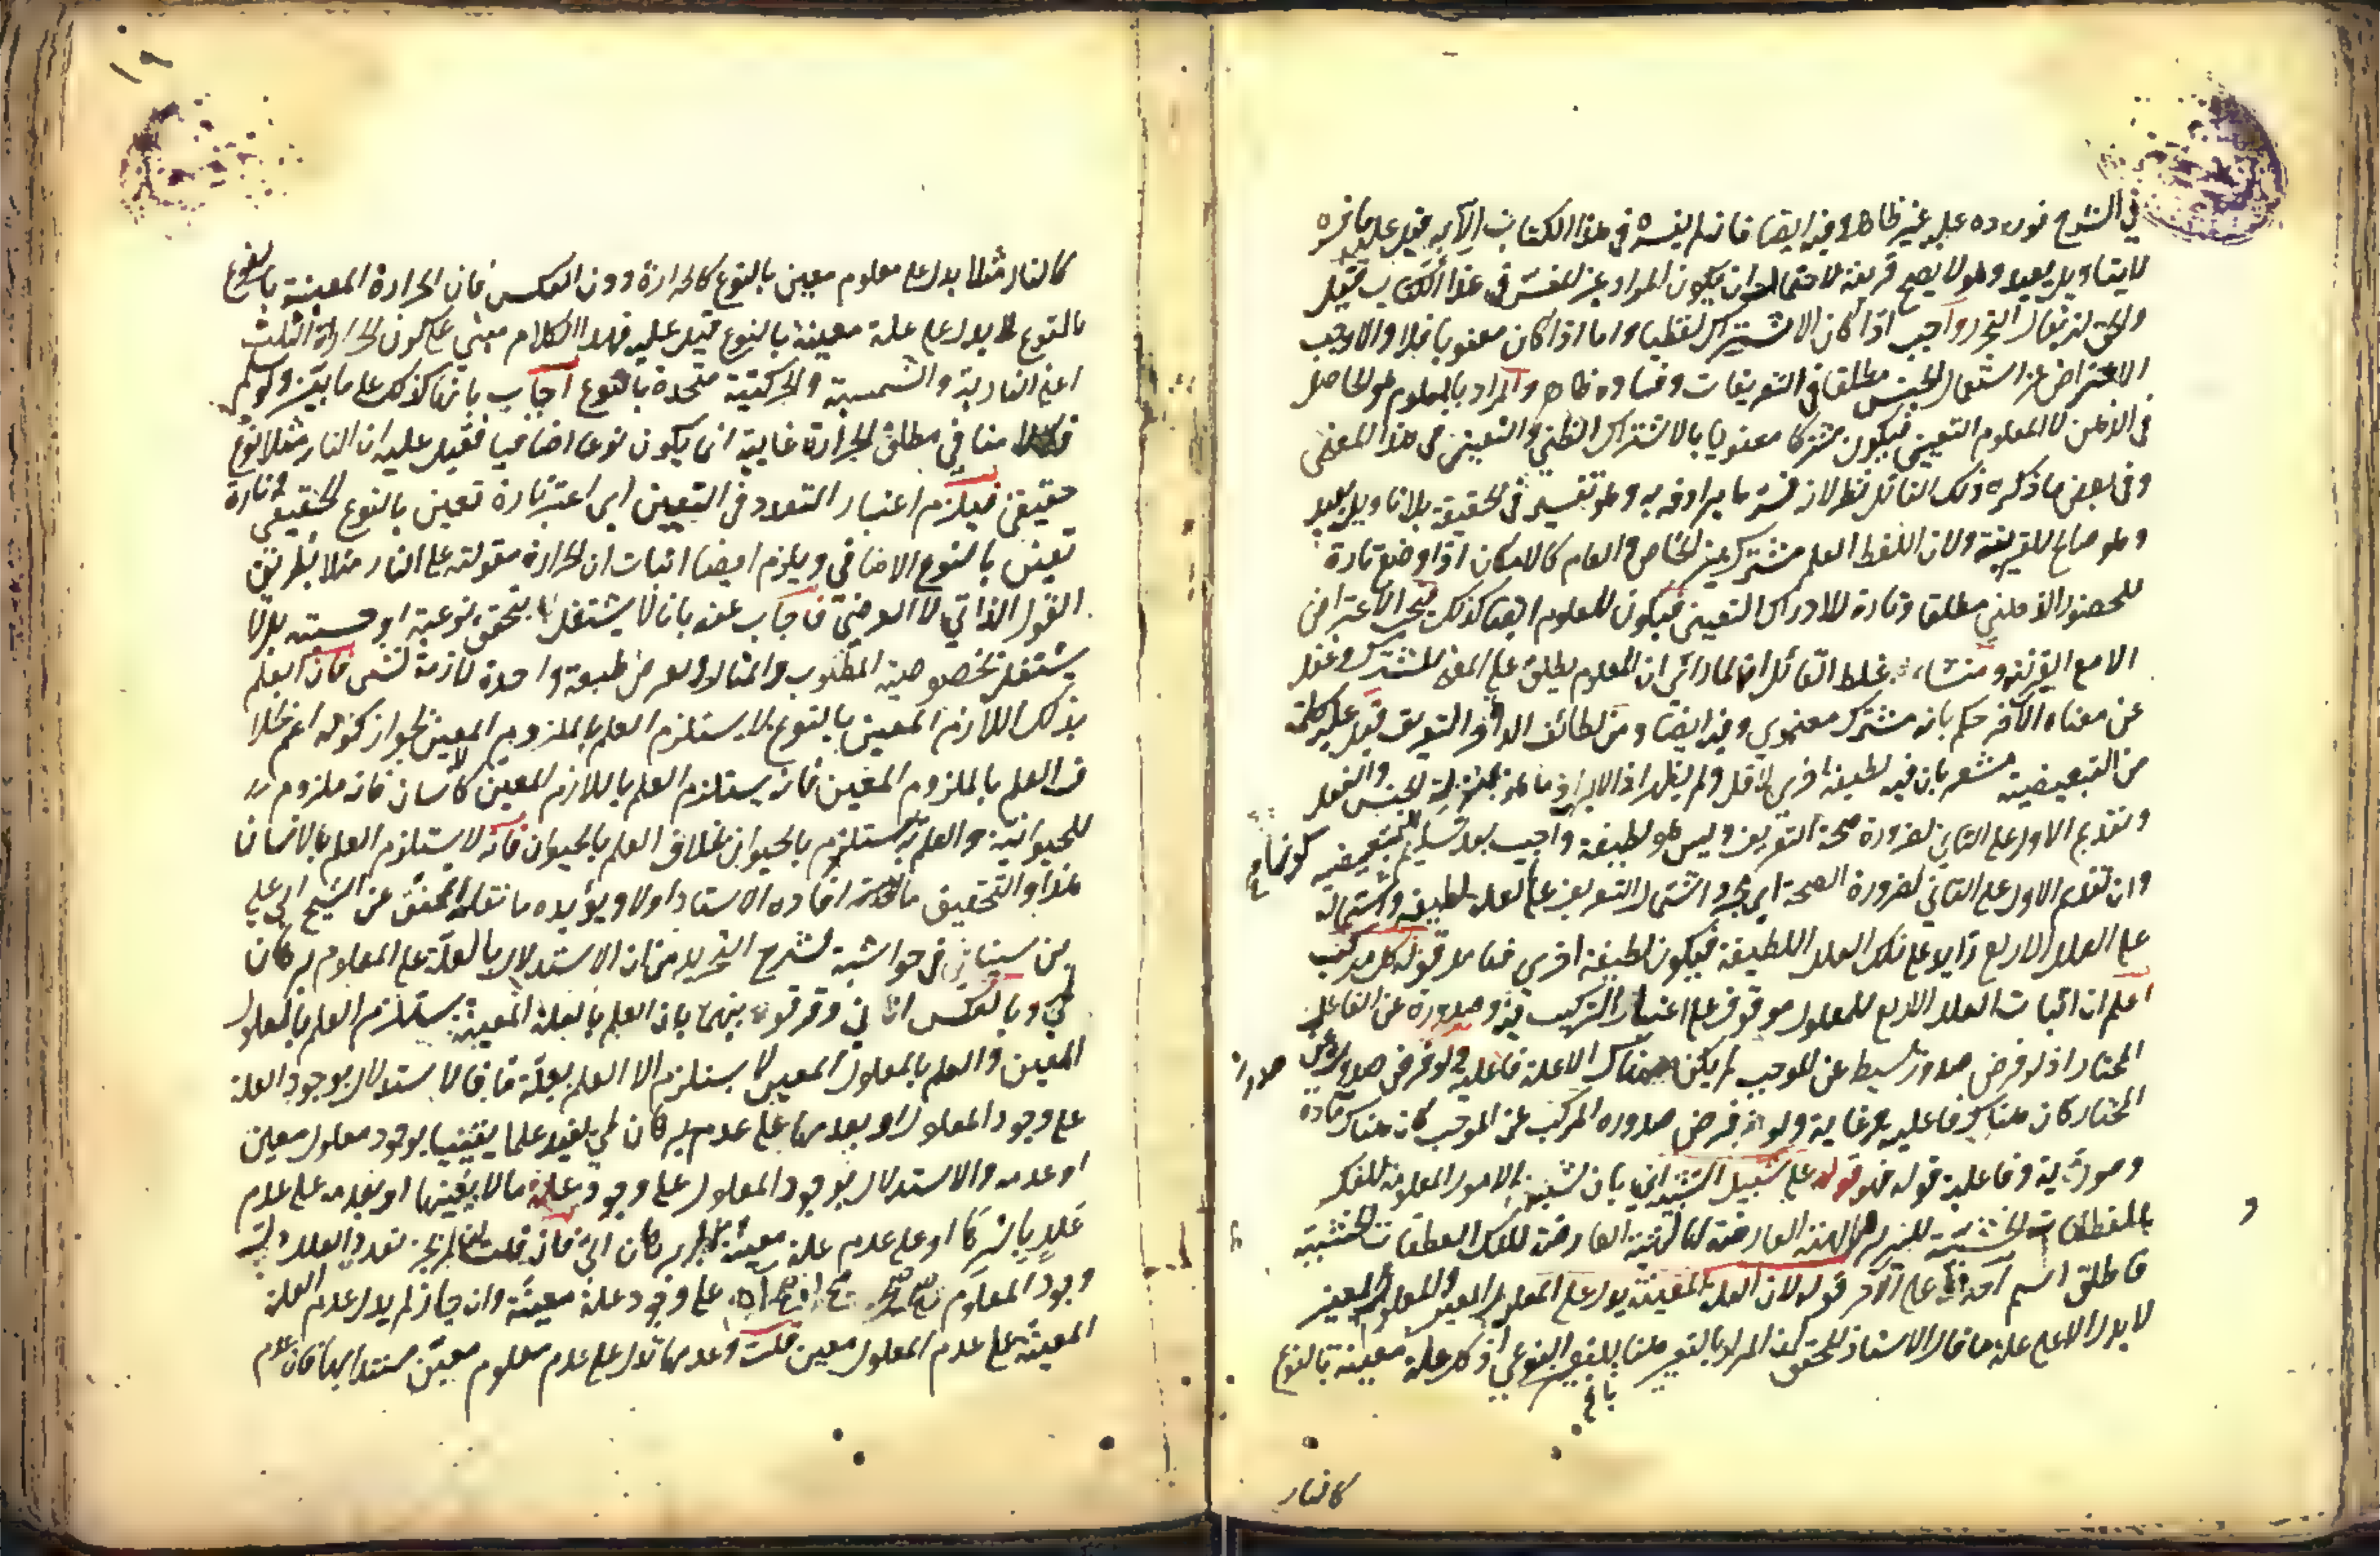 في الشرح فوروده عليه غير ظاهر وفيه ايضا فانه لم يفسره في هذا الكتاب الا به فقيل عليه ما فسره
لا يتأويل بعيد وهو لا يصح قرينة لاحتمال ان يكون المراد غير المفسر في هذا الكتاب فقيل
والحق ان يقال التحرز واجب اذا كان الاشتراك لفظيا واما اذا كان معنويا فلا والا وجب
الاعتراض عن استعمال الجنس مطلقا في التعريفات وفساده ظاهر والمراد بالمعلوم هو الحاصل
في الذهن لا المعلوم التعييني فيكون مشتركا معنويا بالاشتراك الظني والتعييني في هذا المعنى
وفي بعض ما ذكره ذلك القائل نظر لانه فسر ما يرادفه به وهو تفسير في الحقيقة بلا تاويل بعيد
وهو صالح للقرينة ولان اللفظ العلم مشترك بين الخاص والعام كالامكان اذا وضع تارة
للحصول الذهني مطلقا وتارة للادراك التعييني فيكون المعلوم ايضا كذلك فيجئ الاعتراض
الا مع القرينة ومنشاء غلط القائل انه لما رائ ان المعلوم يطلق على المعنى المشترك وغفل
عن معناه الآخر حكم بانه مشترك معنوي وفيه ايضا ومن لطائف الدافع التعريف فقيل عليه كلمة
من التبعيضية مشعر بان فيه لطيفة اخرى لا اقل ولم يظهر اذ الايراد ما هو بمنزلة الجنس والفصل
وتقديم الاول على الثاني لضرورة صحة التعريف وليس هو لطيفة واجيب بعد تسليم التبعيضية كونها
وان تقدم الاول على الثاني لضرورة الصحة اي مجرد اشتمال التعريف على العلل لطيفة واشتماله
على العلل الاربع زايد على تلك العلل اللطيفة فيكون لطيفة اخرى فتامل قوله كل مركب
اعلم ان اثبات العلل الاربع للمعلول موقوف على اعتبار التركيب فيه وصدوره عن الفاعل
المختار اذ لو فرض صدور بسيط عن الموجب لم يكن هناك الا علة فاعلية ولو فرض صدوره عن
المختار كان هناك فاعلية وغاية ولو فرض صدور المركب عن الموجب كان هناك مادة
وصورية وفاعلية قوله فهو قوله على سبيل التشبيه اي بان تشبيه الامور المعلومة للفكر
بالقطعات الخشبية للسرير والهيئة العارضة لها للهيئة العارضة لتلك القطعات الخشبية
فاطلق اسم احدهما على الآخر قوله لان العلة المعينة يدل على المعلول المعين والمعلول المعين
لا يدل الا على علة ما قال الاستاذ المحقق المراد بالتعيين هنا التعيين النوعي اذ كل علة معينة بالنوع
كالنار
١٩
كالنار مثلا يدل على معلوم معين بالنوع كالحرارة دون العكس فان الحرارة المعينة بالنوع
بالنوع لا يدل على علة معينة بالنوع قيل عليه فهذا الكلام مبني على كون الحرارة الثلث
اعني النارية والشمسية والحركتية متحدة بالنوع اجاب بانها كذلك على ما بين ولو سلم
فكلامنا في مطلق الحرارة غاية ان يكون نوعا اضافيا فقيل عليه ان النار مثلا نوع
حقيقي فيلزم اعتبار التعدد في التعيين اي اعتبر تارة تعين بالنوع الحقيقي وتارة
تعين بالنوع الاضافي ويلزم ايضا اثبات ان الحرارة مقولة على النار مثلا بطريق
القول الذاتي لا العرضي فاجاب عنه بانا لا يشتغل بتحقق نوعية او جنسيته بل لا
يشتغل بخصوصية المطلوب والمثال ولو عرض طبيعة واحدة لازمة لشئ فان العلم
بذلك اللازم المعين بالنوع لا يستلزم العلم بالملزوم المعين لجواز كونه اعم بخلا
ف العلم بالملزوم المعين فانه يستلزم العلم باللازم المعين كالانسان فانه ملزوم
للحيوانية والعلم به يستلزم بالحيوان بخلاف العلم بالحيوان فانه لا يستلزم العلم بالانسان
هذا والتحقيق ما افاده الاستاد اولا ويؤيده ما نقله المحقق عن الشيخ ابي علي
بن سينا في حواشية لشرح التجريد من ان الاستدلال بالعلة على المعلوم برهان
لمي وبالعكس اني وفرقوا بينهما بان العلم بالعلة المعينة يستلزم العلم بالمعلول
المعين والعلم بالمعلول المعين لا يستلزم الا العلم بعلة ما فالاستدلال بوجود العلة
على وجود المعلول او بعدمها على عدمه برهان لمي يفيد علما يقينيا بوجود معلول معين
او عدمه والاستدلال بوجود المعلول على وجود علة ما لا يعينها او بعدمه على عدم
علة معينة برهان اني فان قلت ان لم يجز تعدد العلل
وجود المعلوم على وجود علة معينة وان جاز لم يدل عدم العلة
المعينة على عدم المعلول معين قلت وعدمها تدل على عدم معلوم معين مستند اليها فان عدم